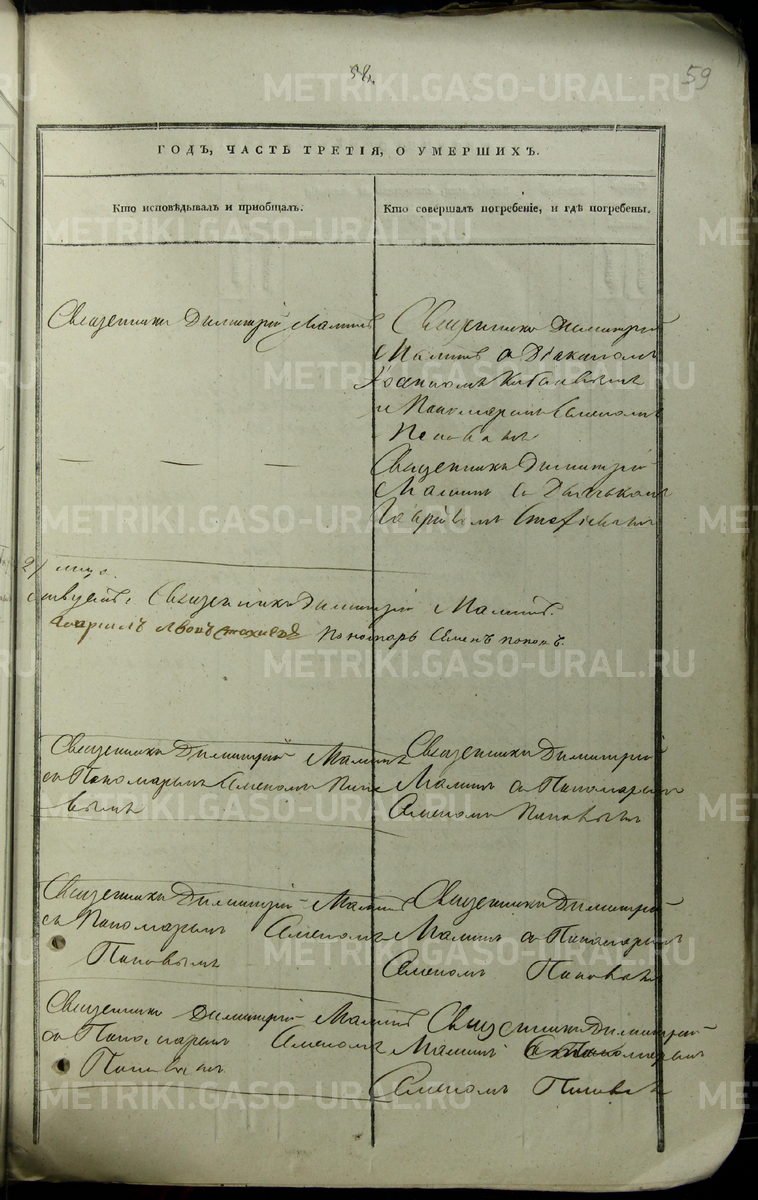 58.
59
ГОДЪ, ЧАСТЬ ТРЕТІЯ, О УМЕРШИХЪ.
Кто исповѣдывалъ и пріобщалъ.
Кто совершалъ погребеніе, и гдѣ погребены.
Священникъ Димитрій Маминъ
Священникъ Димитрій
Маминъ съ Діакономъ
Іоанномъ
и Пономаремъ Семеномъ
Поповымъ
Священникъ Димитрій
Маминъ съ Дьячкомъ
Священникъ Димитрій Маминъ.
пономарь Семенъ поповъ.
Священникъ Димитрій Маминъ
съ Пономаремъ Семеномъ Попо
вымъ
Священникъ Димитрій
Маминъ съ Пономаремъ
Семеномъ Поповымъ
Священникъ Димитрій Маминъ
съ Пономаремъ Семеномъ
Поповымъ
Священникъ Димитрій
Маминъ съ Пономаремъ
Семеномъ Поповымъ
Священникъ Димитрій Маминъ
съ Пономаремъ Семеномъ
Поповымъ
Священникъ Димитрій
Маминъ съ Пономаремъ
Семеномъ Поповымъ
METRIKI.GASO-URAL.RU